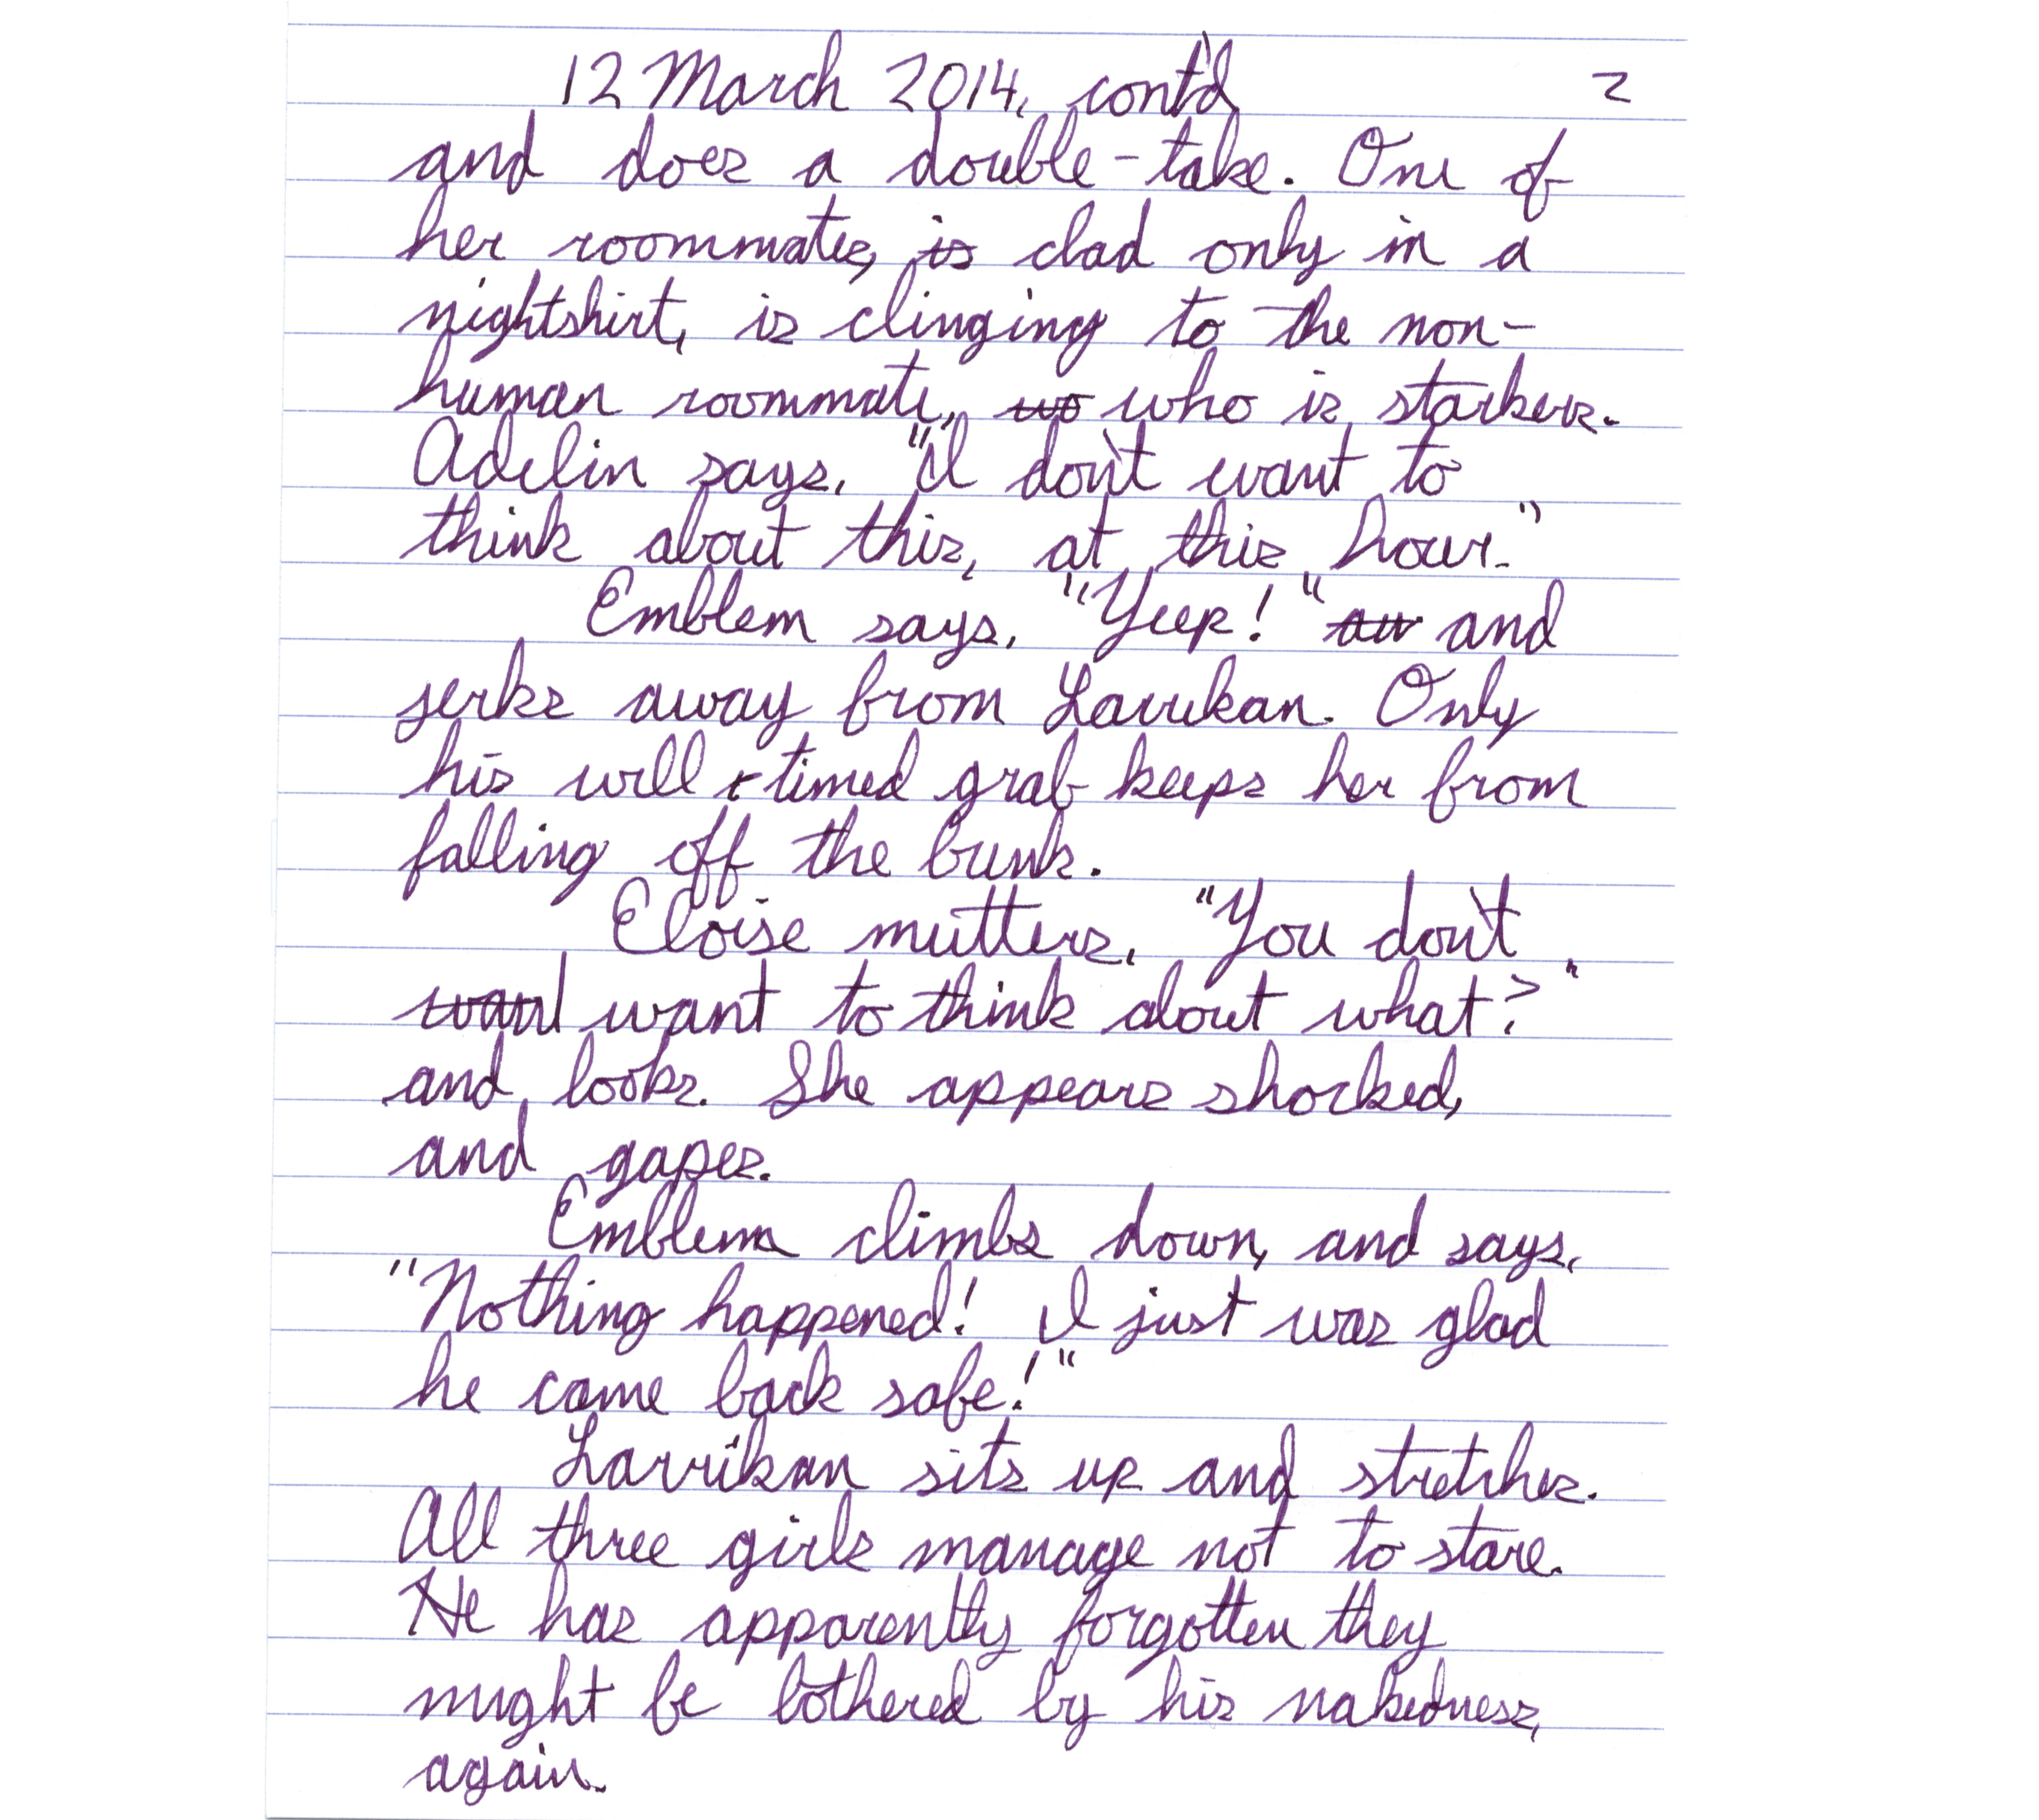 12 March 2014, cont'd 2
and does a double-take. One of
her roommates, is clad only in a
nightshirt, is clinging to the non-
human roommate, wo who is starkers.
Adelin says, "I don't want to
think about this, at this hour."
Emblem says, "Yeep!" aw and
jerks away from Larrikan. Only
his well-timed grab keeps her from
falling off the bunk.
Eloise mutters, "You don't
want want to think about what?"
and looks. She appears shocked,
and gapes.
Emblem climbs down, and says,
"Nothing happened! I just was glad
he came back safe!"
Larrikan sits up and stretches.
All three girls manage not to stare.
He has apparently forgotten they
might be bothered by his nakedness,
again.